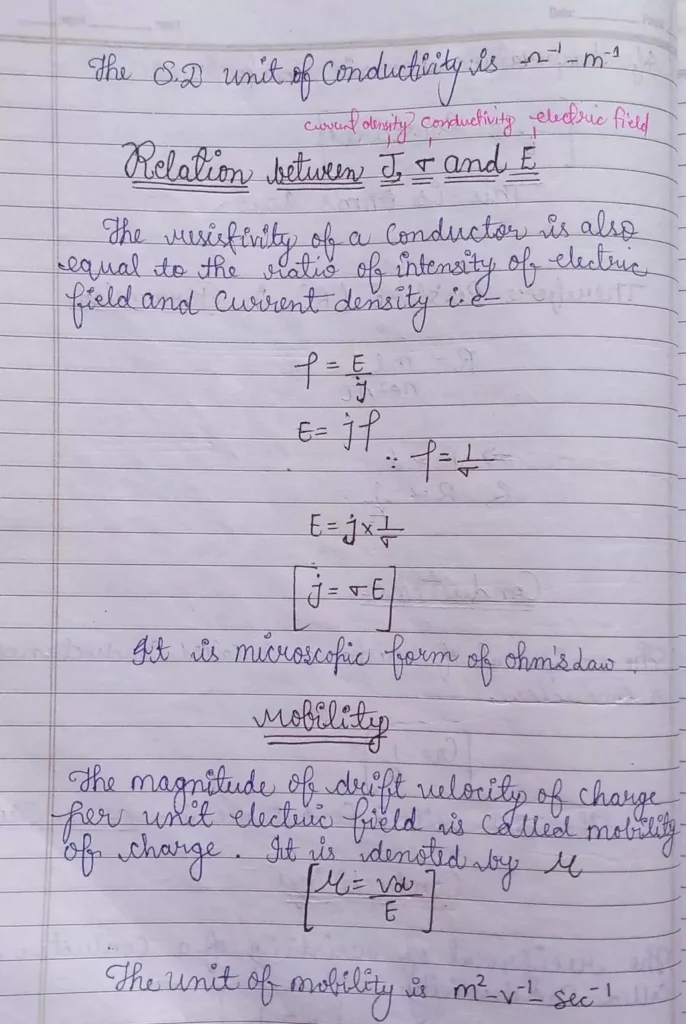 The S.D unit of conductivity is Ω⁻¹-m⁻¹
current density conductivity electric field
Relation between J, σ and E
The resistivity of a conductor is also
equal to the ratio of intensity of electric
field and current density i.e-
ρ = E/j
E = jρ
∵ ρ = 1/σ
E = j × 1/σ
[j = σE]
It is microscopic form of ohm's Law.
Mobility
The magnitude of drift velocity of charge
per unit electric field is called mobility
of charge. It is denoted by μ
[μ = vd/E]
The unit of mobility is m²-v⁻¹-sec⁻¹